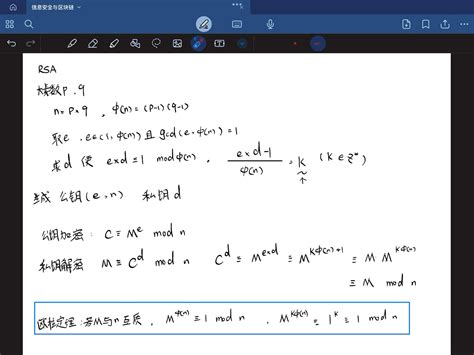 信息安全与区块链
RSA
大素数 p . q
n = p × q , φ(n) = (p-1)(q-1)
取e . e∈(1, φ(n)) 且 gcd(e, φ(n)) = 1
求d 使 e×d ≡ 1 mod φ(n) , (e×d-1)/φ(n) = k (k∈Z*)
生成 公钥(e,n) 私钥 d
公钥加密: C ≡ M^e mod n
私钥解密 M ≡ C^d mod n C^d ≡ M^{e×d} ≡ M^{kφ(n)+1} ≡ M M^{kφ(n)}
≡ M mod n
欧拉定理: 若M与n互质 , M^{φ(n)} ≡ 1 mod n , M^{kφ(n)} ≡ 1^k ≡ 1 mod n